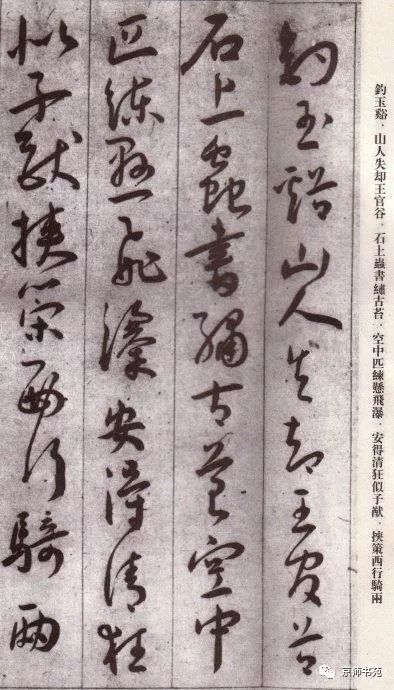 釣玉谿．山人失却王官谷．石上蟲書繡古苔．空中匹練懸飛瀑．安得清狂似子猷．挾策西行騎兩
釣玉谿山人失却王官谷
石上蟲書繡古苔空中
匹練懸飛瀑安得清狂
似子猷挾策西行騎兩
京师书苑